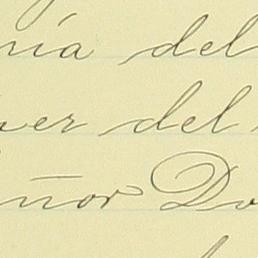 nía del
ver del
ñor Do